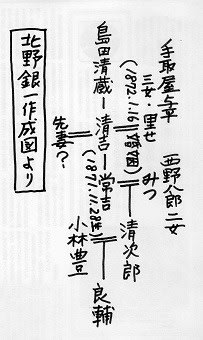 手取屋与平 三女・里せ
西野八郎二女 みつ
(1872.1.16 婚姻)
島田清蔵―清吉―常吉―清次郎
(1871.11.28生)
先妻?
小林豊
良輔
北野銀一作成図より